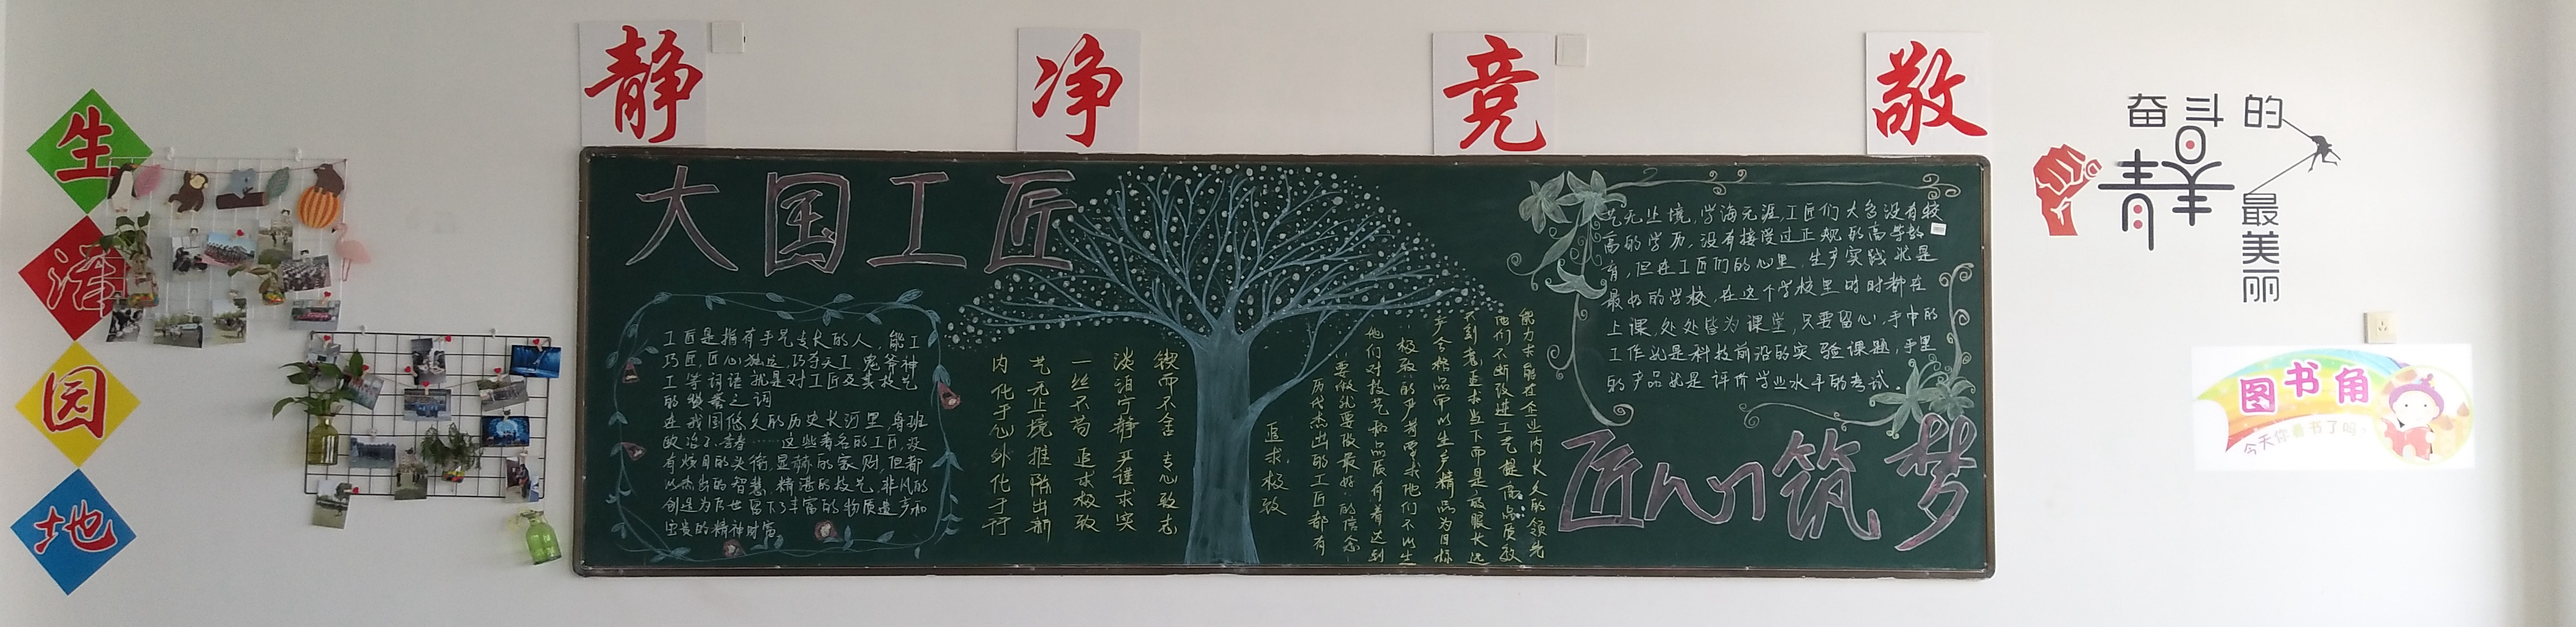 静 净 竞 敬
生
活
园
地
大国工匠
工匠是指有手艺专长的人，能工
巧匠，匠心独运，巧夺天工，鬼斧神
工等词语就是对工匠及其技艺
的赞誉之词
在我国悠久的历史长河里，鲁班
欧冶子、李春……这些著名的工匠，没
有炫目的头衔，显赫的家财，但都
以杰出的智慧，精湛的技艺，非凡的
创造为后世留下了丰富的物质遗产和
宝贵的精神财富
锲而不舍 专心致志
淡泊宁静 严谨求实
一丝不苟 追求极致
艺无止境 推陈出新
内化于心 外化于行
追求极致
能力求能在企业内长久的领先
他们不断改进工艺提高品质教
大到老追求当下而是放眼长远
产今精品而以生产精品为目标
“极致”的严苛要求他们不以生
他们对技艺和品质有着达到
要做就要做最好”的信念
历代杰出的工匠都有
艺无止境，学海无涯，工匠们大多没有较
高的学历，没有接受过正规的高等教
育，但在工匠们的心里，生产实践就是
最好的学校，在这个学校里时时都在
上课，处处皆为课堂，只要留心，手中的
工作就是科技前沿的实验课题，手里
的产品就是评价学业水平的考试。
匠心筑梦
奋斗的
青春
最美丽
图书角
今天你看书了吗？